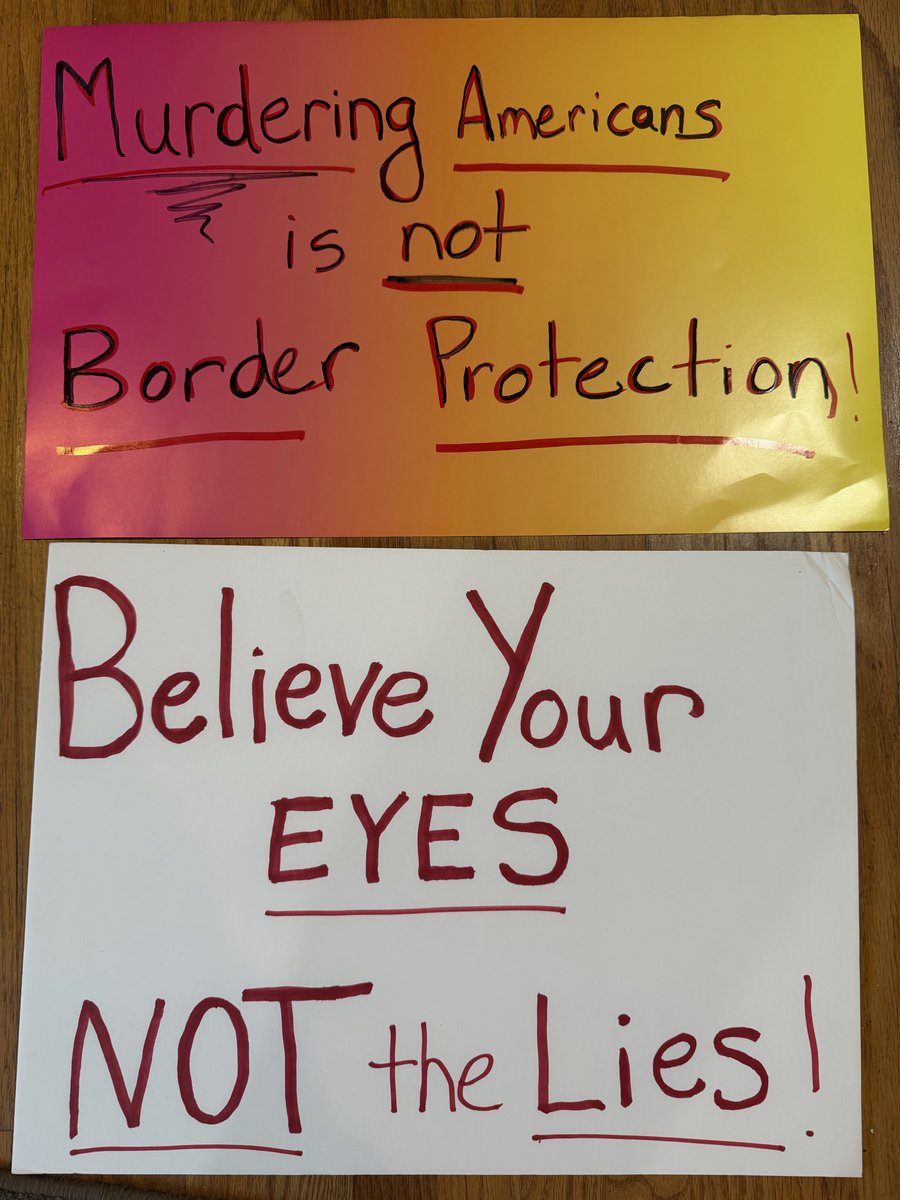 Murdering Americans
is not
Border Protection!
Believe Your
EYES
NOT the Lies!